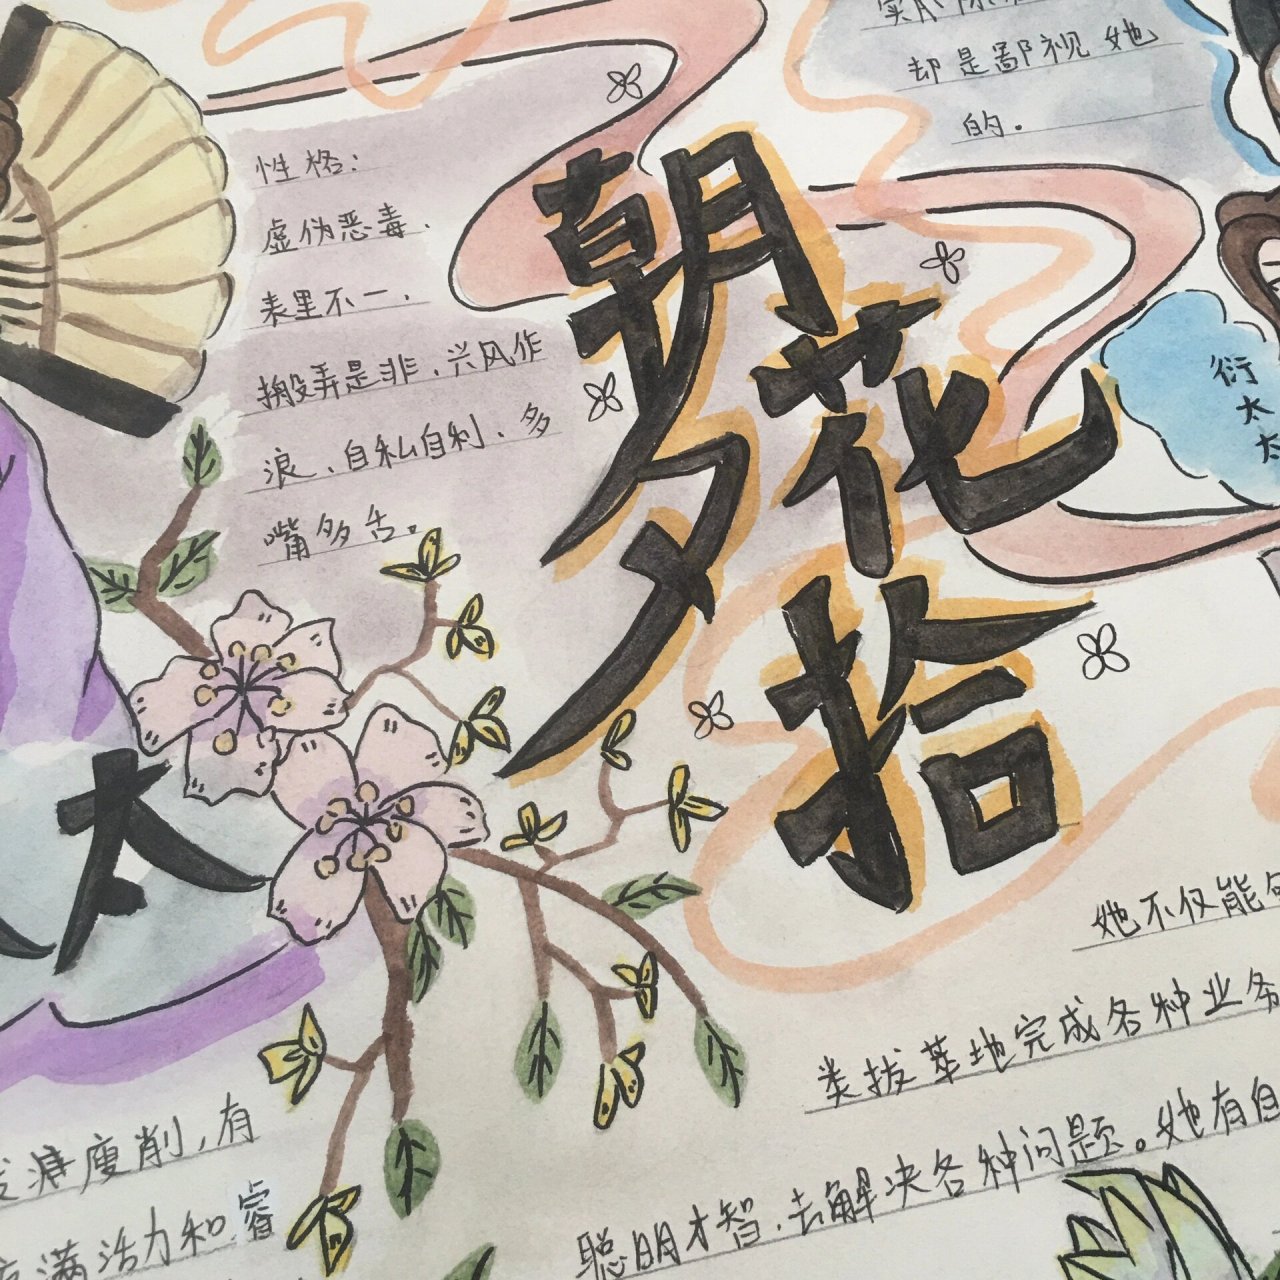 却是鄙视她
的。
性格：
虚伪恶毒.
表里不一.
搬弄是非.兴风作
浪、自私自利.多
嘴多舌。
朝花
夕拾
衍太太
太
她不仅能
类拔萃地完成各种业务
聪明才智.去解决各种问题。她有自
瘦削,有
满活力和睿